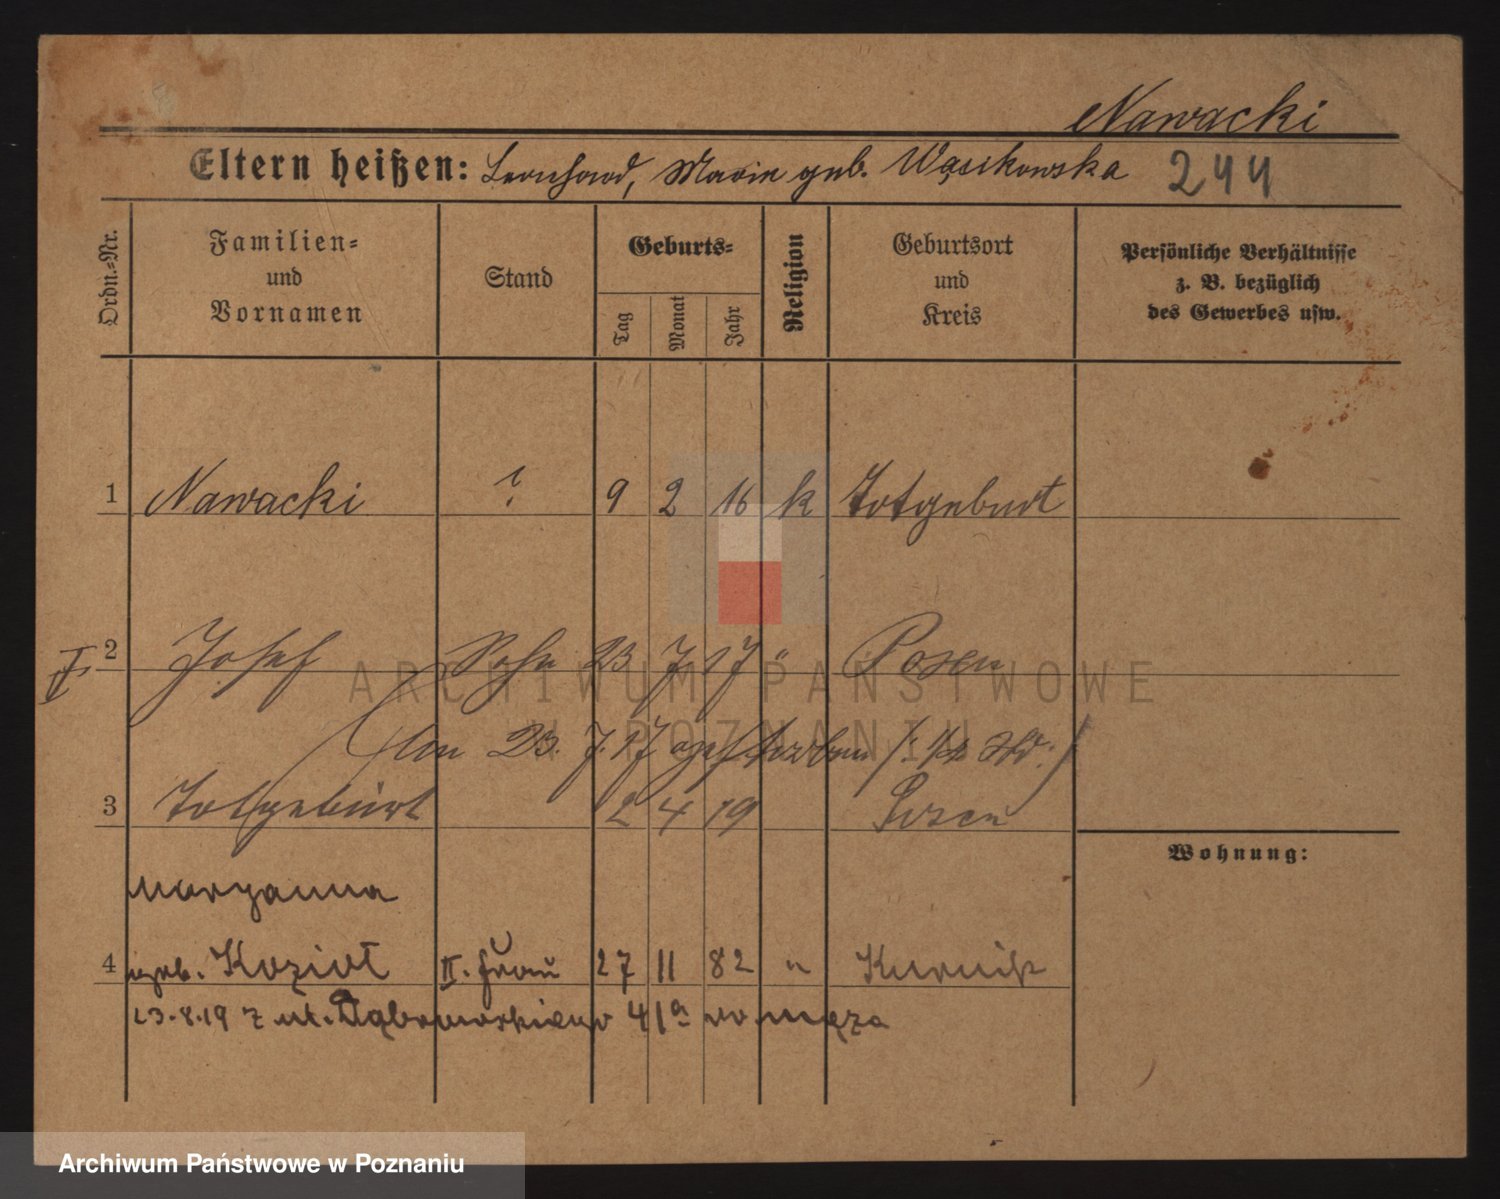 Nawacki
Eltern heißen: Bernhard, Marie geb. Wąsikowska 244
Ordn.-Nr.
Familien-
und
Vornamen
Stand
Geburts-
Tag
Monat
Jahr
Religion
Geburtsort
und
Kreis
Persönliche Verhältnisse
z. B. bezüglich
des Gewerbes usw.
1 Nawacki ? 9 2 16 k Totgeburt
2 Josef Sohn 23 7 17 " Posen
am 23. 7. 17 gestorben /: 1/4 Std :/
3 Totgeburt 2 4 19 Posen
Wohnung:
Maryanna
4 geb. Kozioł II. Frau 27 11 82 " Kurnik
23.8.19 z ul. Dąbrowskiego 41a do męża
ARCHIWUM PAŃSTWOWE
W POZNANIU
Archiwum Państwowe w Poznaniu